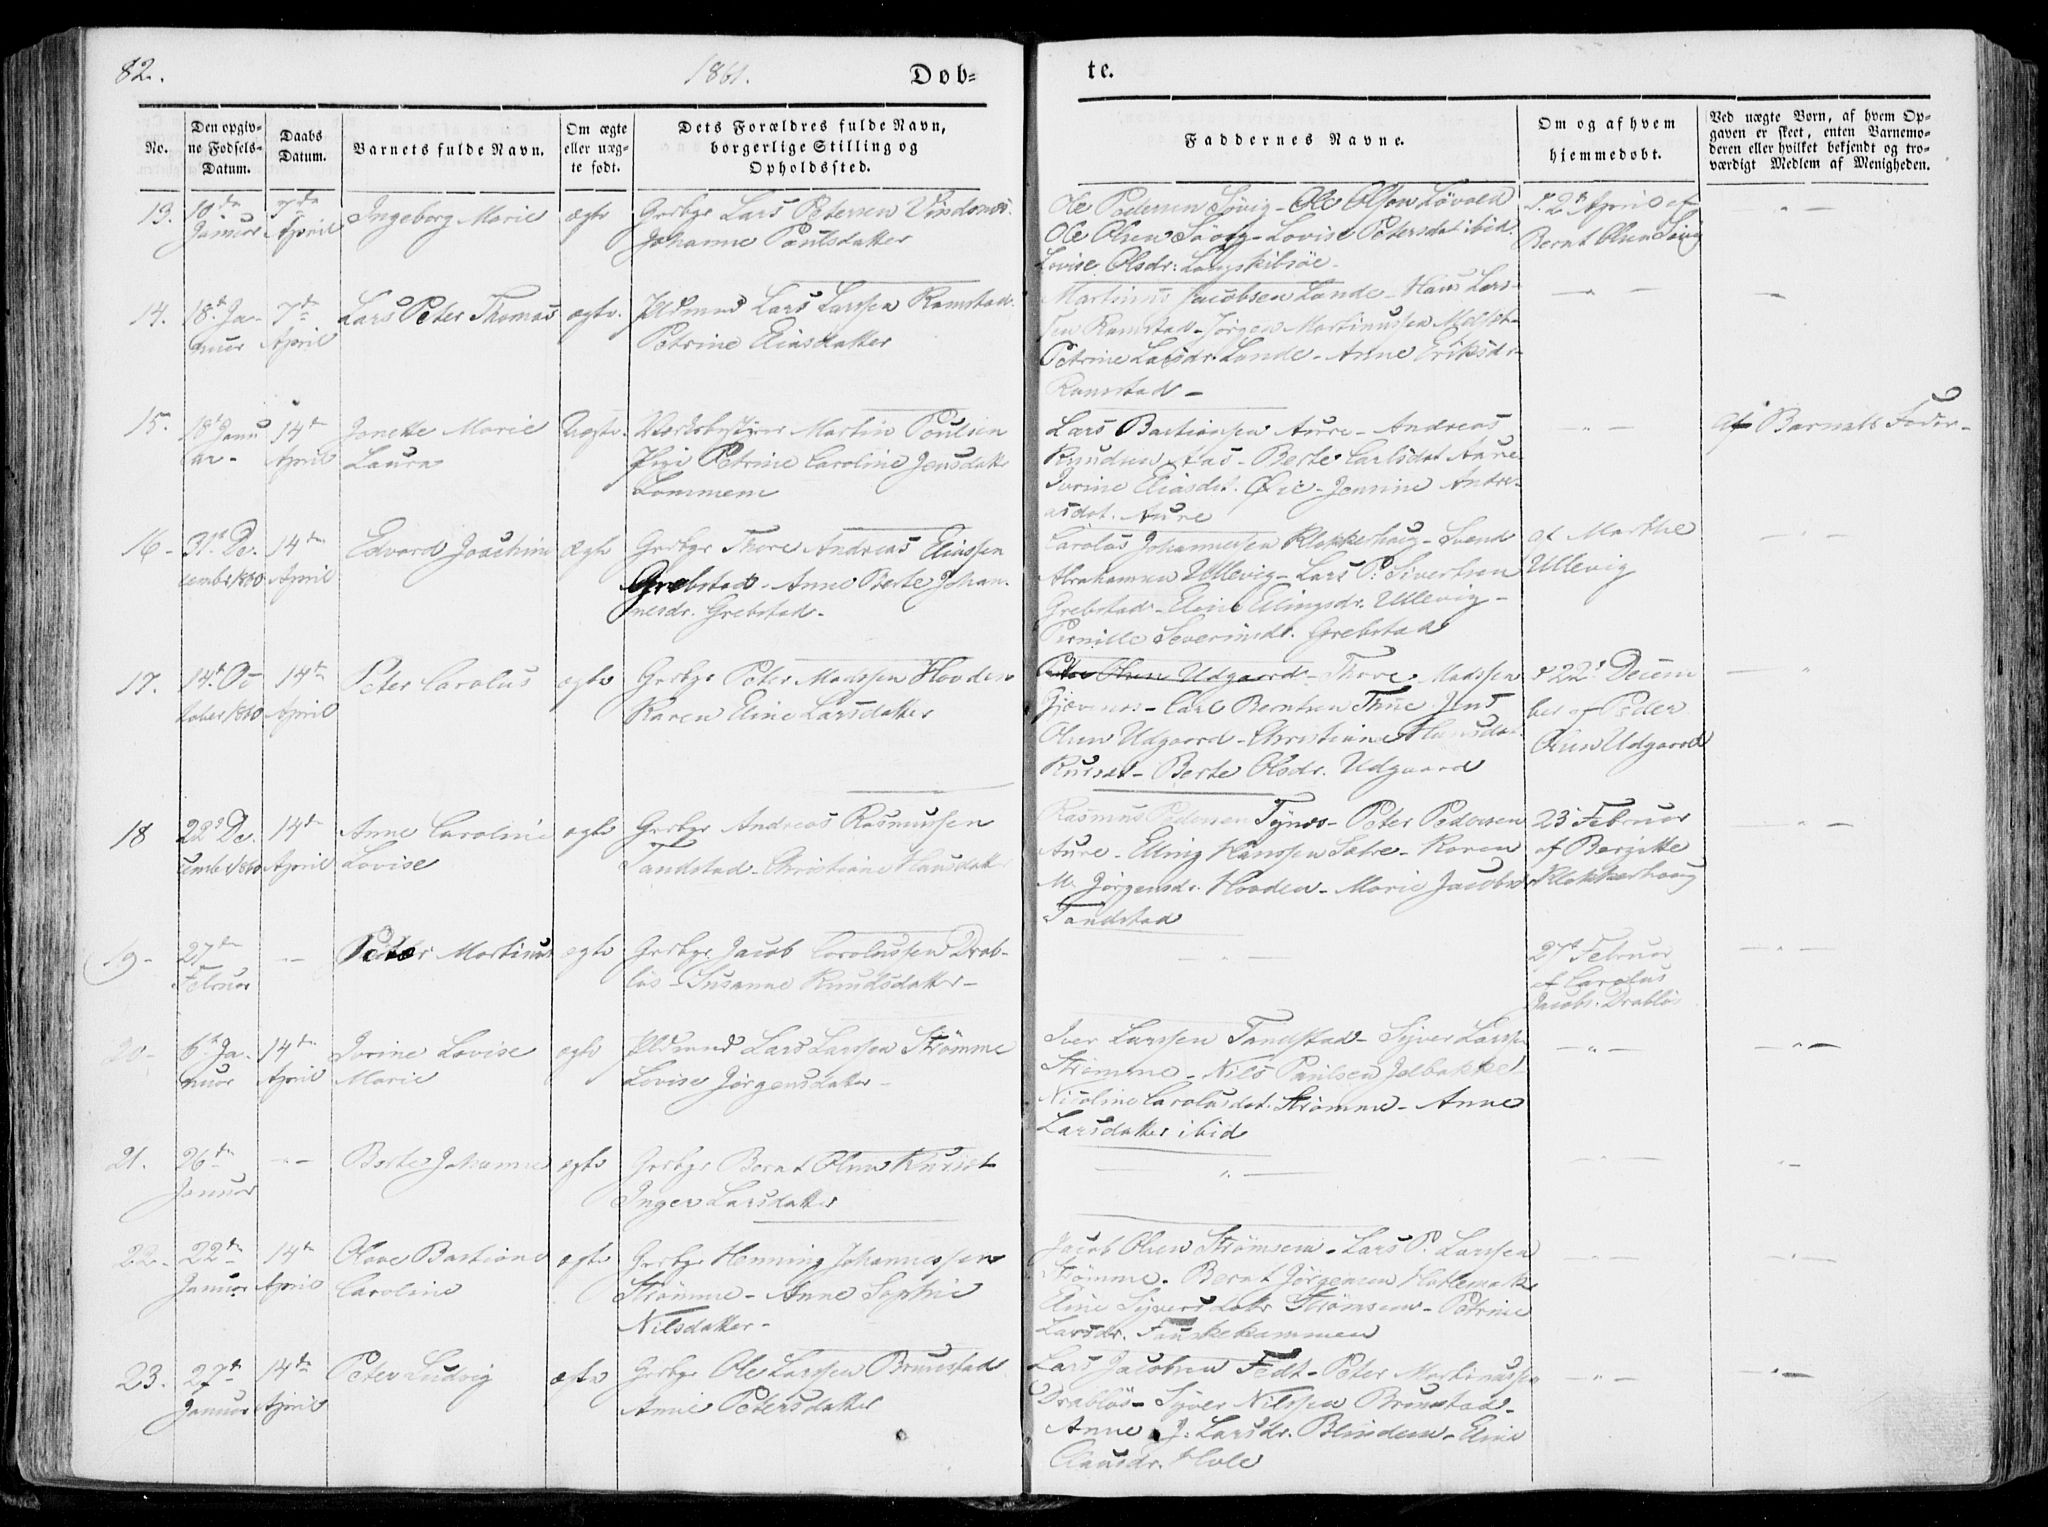 82.
1861.
Dob-
te.
No.
Den opgiv-
ne Fødsels-
Datum.
Daabs
Datum.
Barnets fulde Navn.
Om ægte
eller uæg-
te født.
Dets Forældres fulde Navn,
borgerlige Stilling og
Opholdssted.
Faddernes Navne.
Om og af hvem
hjemmedøbt.
Ved uægte Børn, af hvem Op-
gaven er skeet, enten Barnemo-
deren eller hvilket bekjendt og tro-
værdigt Medlem af Menigheden.
13.
10de
Januar
7de
April
Ingeborg Marie
ægte
Grbgr Lars Petersen Vindsnæs.
Johanne Paulsdatter
Ole Pedersen Søvig - Ole Olsen Løvold
Ole Olsen Søvig - Lovise Petersdat ibid.
Lovise Olsdr: Langskibsøe -
d. 2d April af
Bernt Olsen Søvig
14.
18de Ja-
nuar
7de
April
Lars Peter Thomas
ægte.
Pldsmd Lars Larssen Ramstad.
Petrine Eliasdatter
Martinus Jacobsen Lande - Hans Lars-
sen Ramstad - Jørgen Martinussen Melset -
Petrine Larsdr. Lande - Anne Eriksdr
Ramstad -
15.
18d Janu
ar -
14de
April
Janette Marie
Laura
Uægte.
Værksbestyrer Martin Poulsen
Pige Petrine Caroline Jensdatter
Lommem
Lars Bastiansen Aure - Andreas
Knudsen Aas - Berte Carlsdat Aure
Ivrine Eliasdt. Øie - Jensine Andre-
asdat. Aure
Af Barnets Fader -
16 -
31te De-
cember 1860
14de
April
Edvard Joachim
Ægte
Grbgr Thore Andreas Eliassen
Grebstad - Anne Berte Johan-
nesdr. Grebstad -
Carolus Johannessen Klokkerhaug - Svend
Abrahamsen Ullevig - Lars P: Sivertsen
Grebstad - Eline Ellingsdr. Ullevig -
Pernille Severinsdr. Grebstad
af Marthe
Ullevig
17.
14de Oc-
tober 1860
14de
April
Peter Carolus
ægte
Grbgr Peter Madssen Hovden
Karen Eline Larsdatter
Peder Olsen Udgaard - Thore Madssen
Gjævenes - Carl Berntsen Thue Jens
Olsen Udgaard - Christiane Hansdr
Kurset - Berte Olsdr. Udgaard
d 22d Decem
ber af Peder
Olsen Udgaard
18
22d De-
cember 1860
14de
April
Anne Caroline
Lovise
ægte
Grbgr Andreas Rasmussen
Tandstad - Christiane Hansdatter
Rasmus Pedersen Tynæs - Peter Pedersen
Aure - Elling Hanssen Sætre - Karen
M. Jørgensdr. Hovden - Marie Jacobsdr
Tandstad
23 Februar
af Bergitte
Klokkerhaug
19 -
27de
Februar
Petter Martinus
ægte
Grbgr Jacob Carolussen Drab-
løs - Susanne Knudsdatter -
27d Februar
af Carolus
Jacobs. Drabløs
20 -
6te Ja-
nuar
14de
April
Ivrine Lovise
Marie
ægte
Pldsmd Lars Larssen Strømme
Lovise Jørgensdatter -
Iver Larssen Tandstad - Syver Larssen
Strømme - Nils Paulsen Jelbakke
Nicoline Carolusdat. Strømme - Anne
Larsdatter ibid
21.
26de
Januar
Berte Johanne
ægte
Grbgr Bernt Olsen Kurset
Inger Larsdatter
22 -
22de
Januar
14de
April
Olave Bastiane
Caroline
ægte
Grbgr Henning Johannessen
Strømme - Anne Sophie
Nilsdatter -
Jacob Olsen Strømsem - Lars P. Larssen
Strømme. Bernt Jørgensen Hatlemark
Eline Syversdatr Strømsem - Petrine
Larsdr. Fauskekammen
23.
27de
Januar
14de
April
Peter Ludvig
ægte
Grbgr Ole Larssen Brunstad
Anne Petersdatter
Lars Jacobsen Fedt - Peter Martinussen
Drabløs - Syver Nilssen Brunstad -
Anne J: Larsdr. Blindem - Eline
Clausdr. Hole